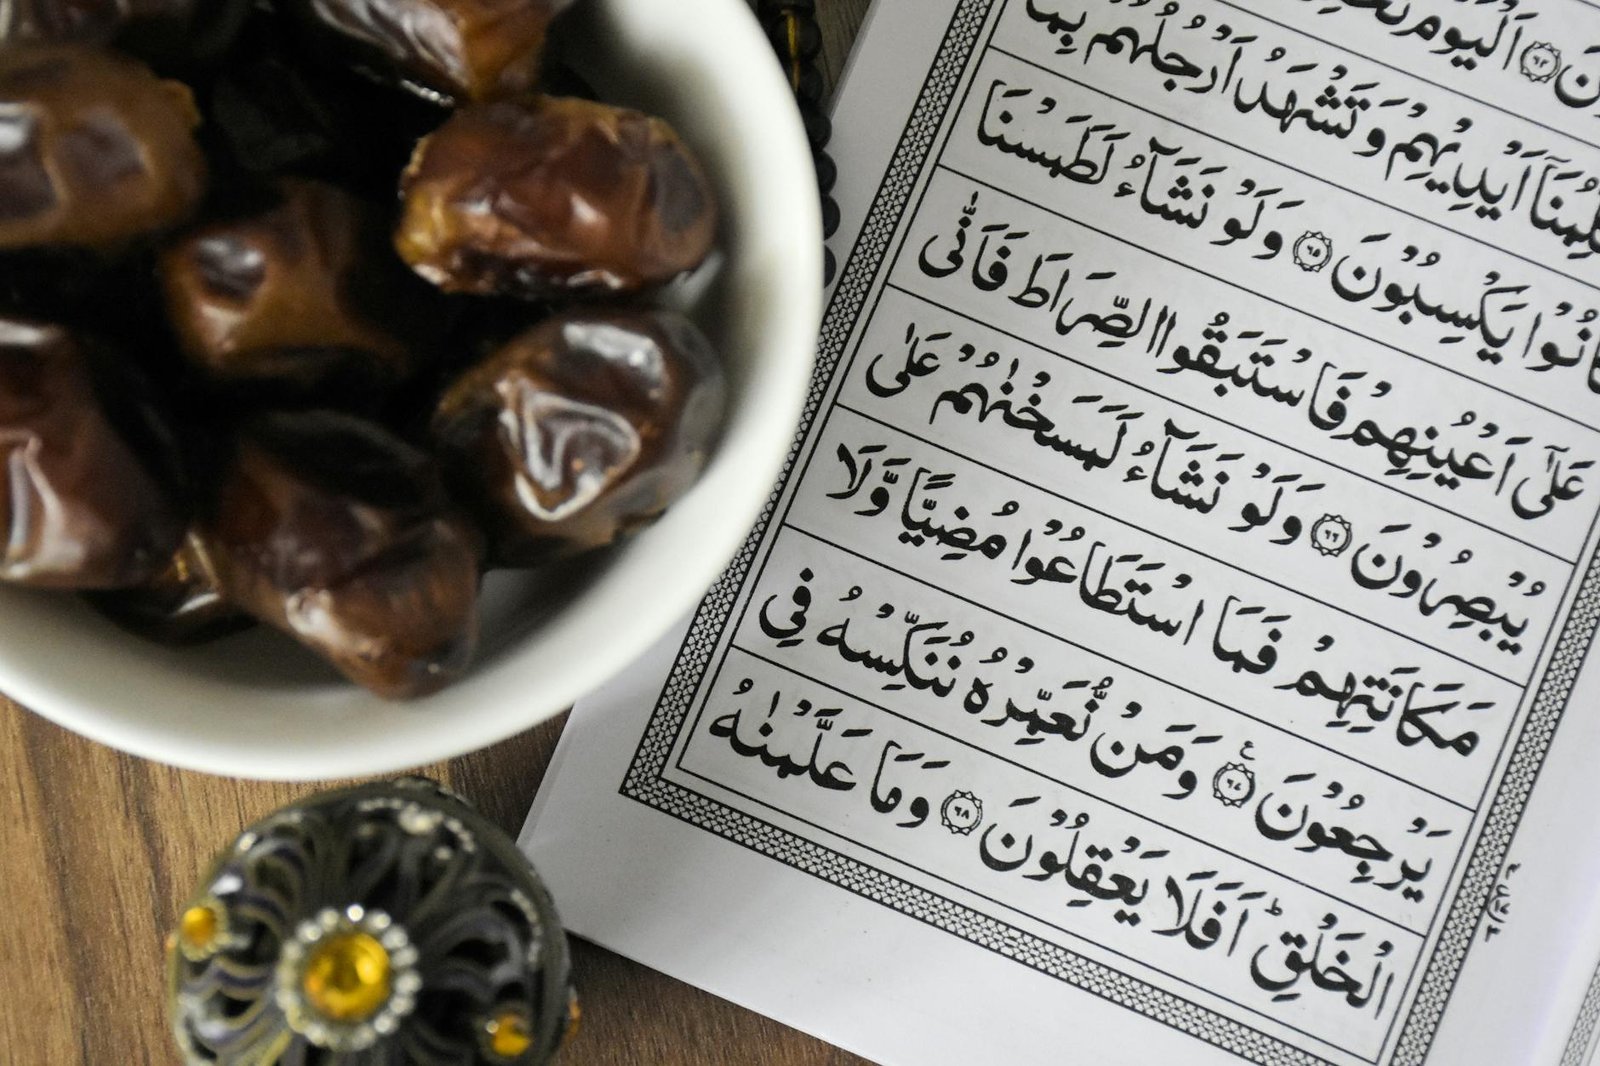 اَلْيَوْمَ
اَيْدِيْهِمْ وَتَشْهَدُ اَرْجُلُهُمْ بِمَا
كَانُوْا يَكْسِبُوْنَ ﴿٦٥﴾ وَلَوْ نَشَآءُ لَطَمَسْنَا
عَلٰۤى اَعْيُنِهِمْ فَاسْتَبَقُوا الصِّرَاطَ فَاَنّٰى
يُبْصِرُوْنَ ﴿٦٦﴾ وَلَوْ نَشَآءُ لَمَسَخْنٰهُمْ عَلٰى
مَكَانَتِهِمْ فَمَا اسْتَطَاعُوْا مُضِيًّا وَّلَا
يَرْجِعُوْنَ ﴿٦٧﴾ وَمَنْ نُّعَمِّرْهُ نُنَكِّسْهُ فِى
الْخَلْقِؕ اَفَلَا يَعْقِلُوْنَ ﴿٦٨﴾ وَمَا عَلَّمْنٰهُ